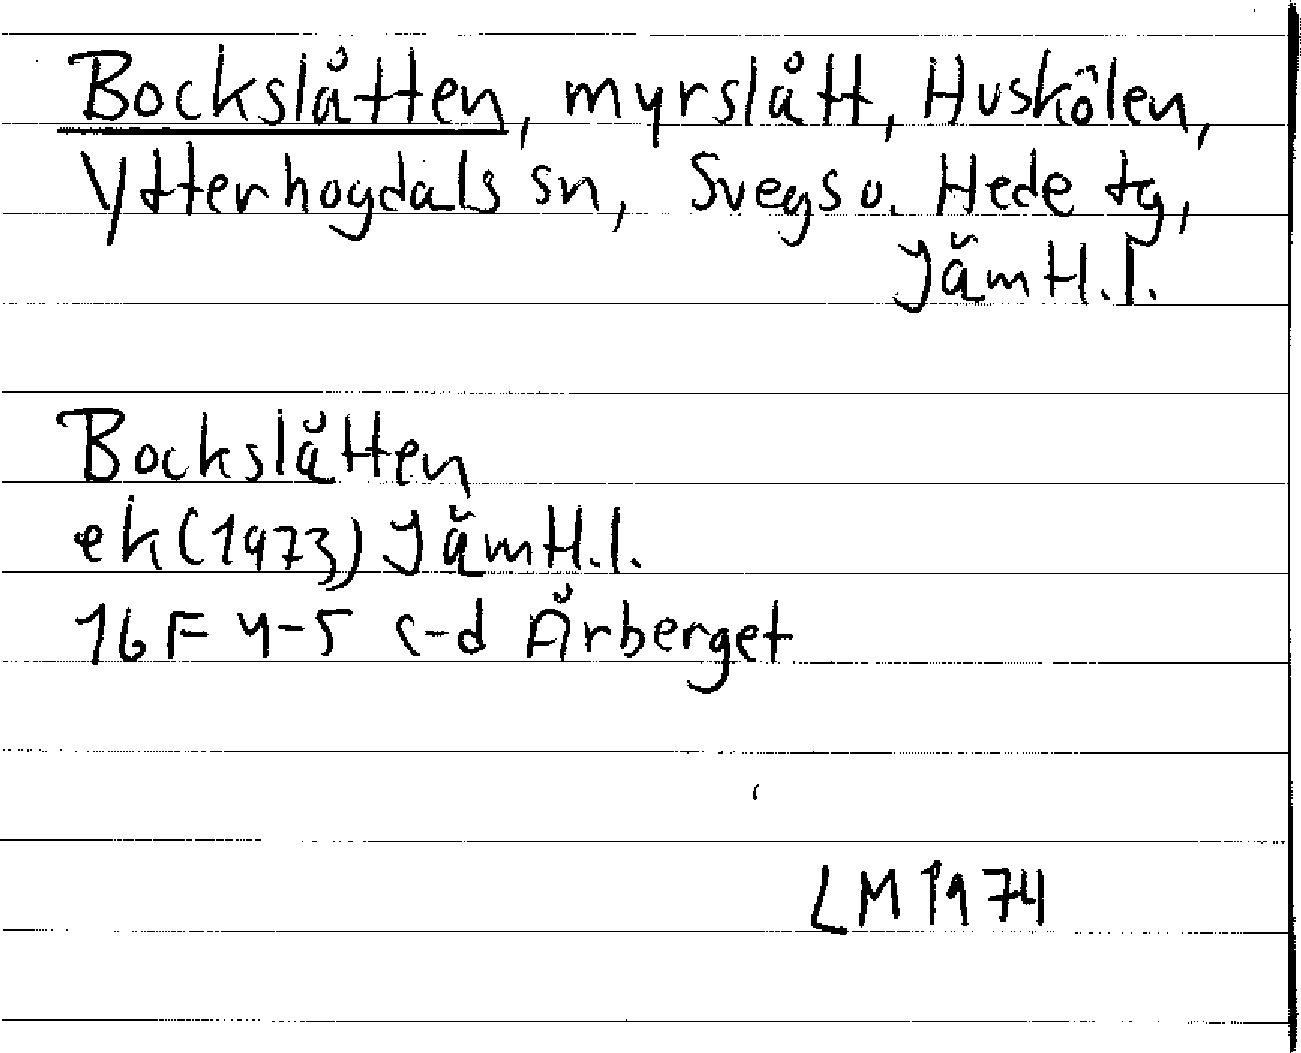 Bockslåtten, myrslått, Huskölen,
Ytterhogdals sn, Svegs o. Hede tg,
Jämtl. l.
Bockslåtten
ek (1973) Jämtl. l.
16F 4-5 c-d Årberget
LM 1974